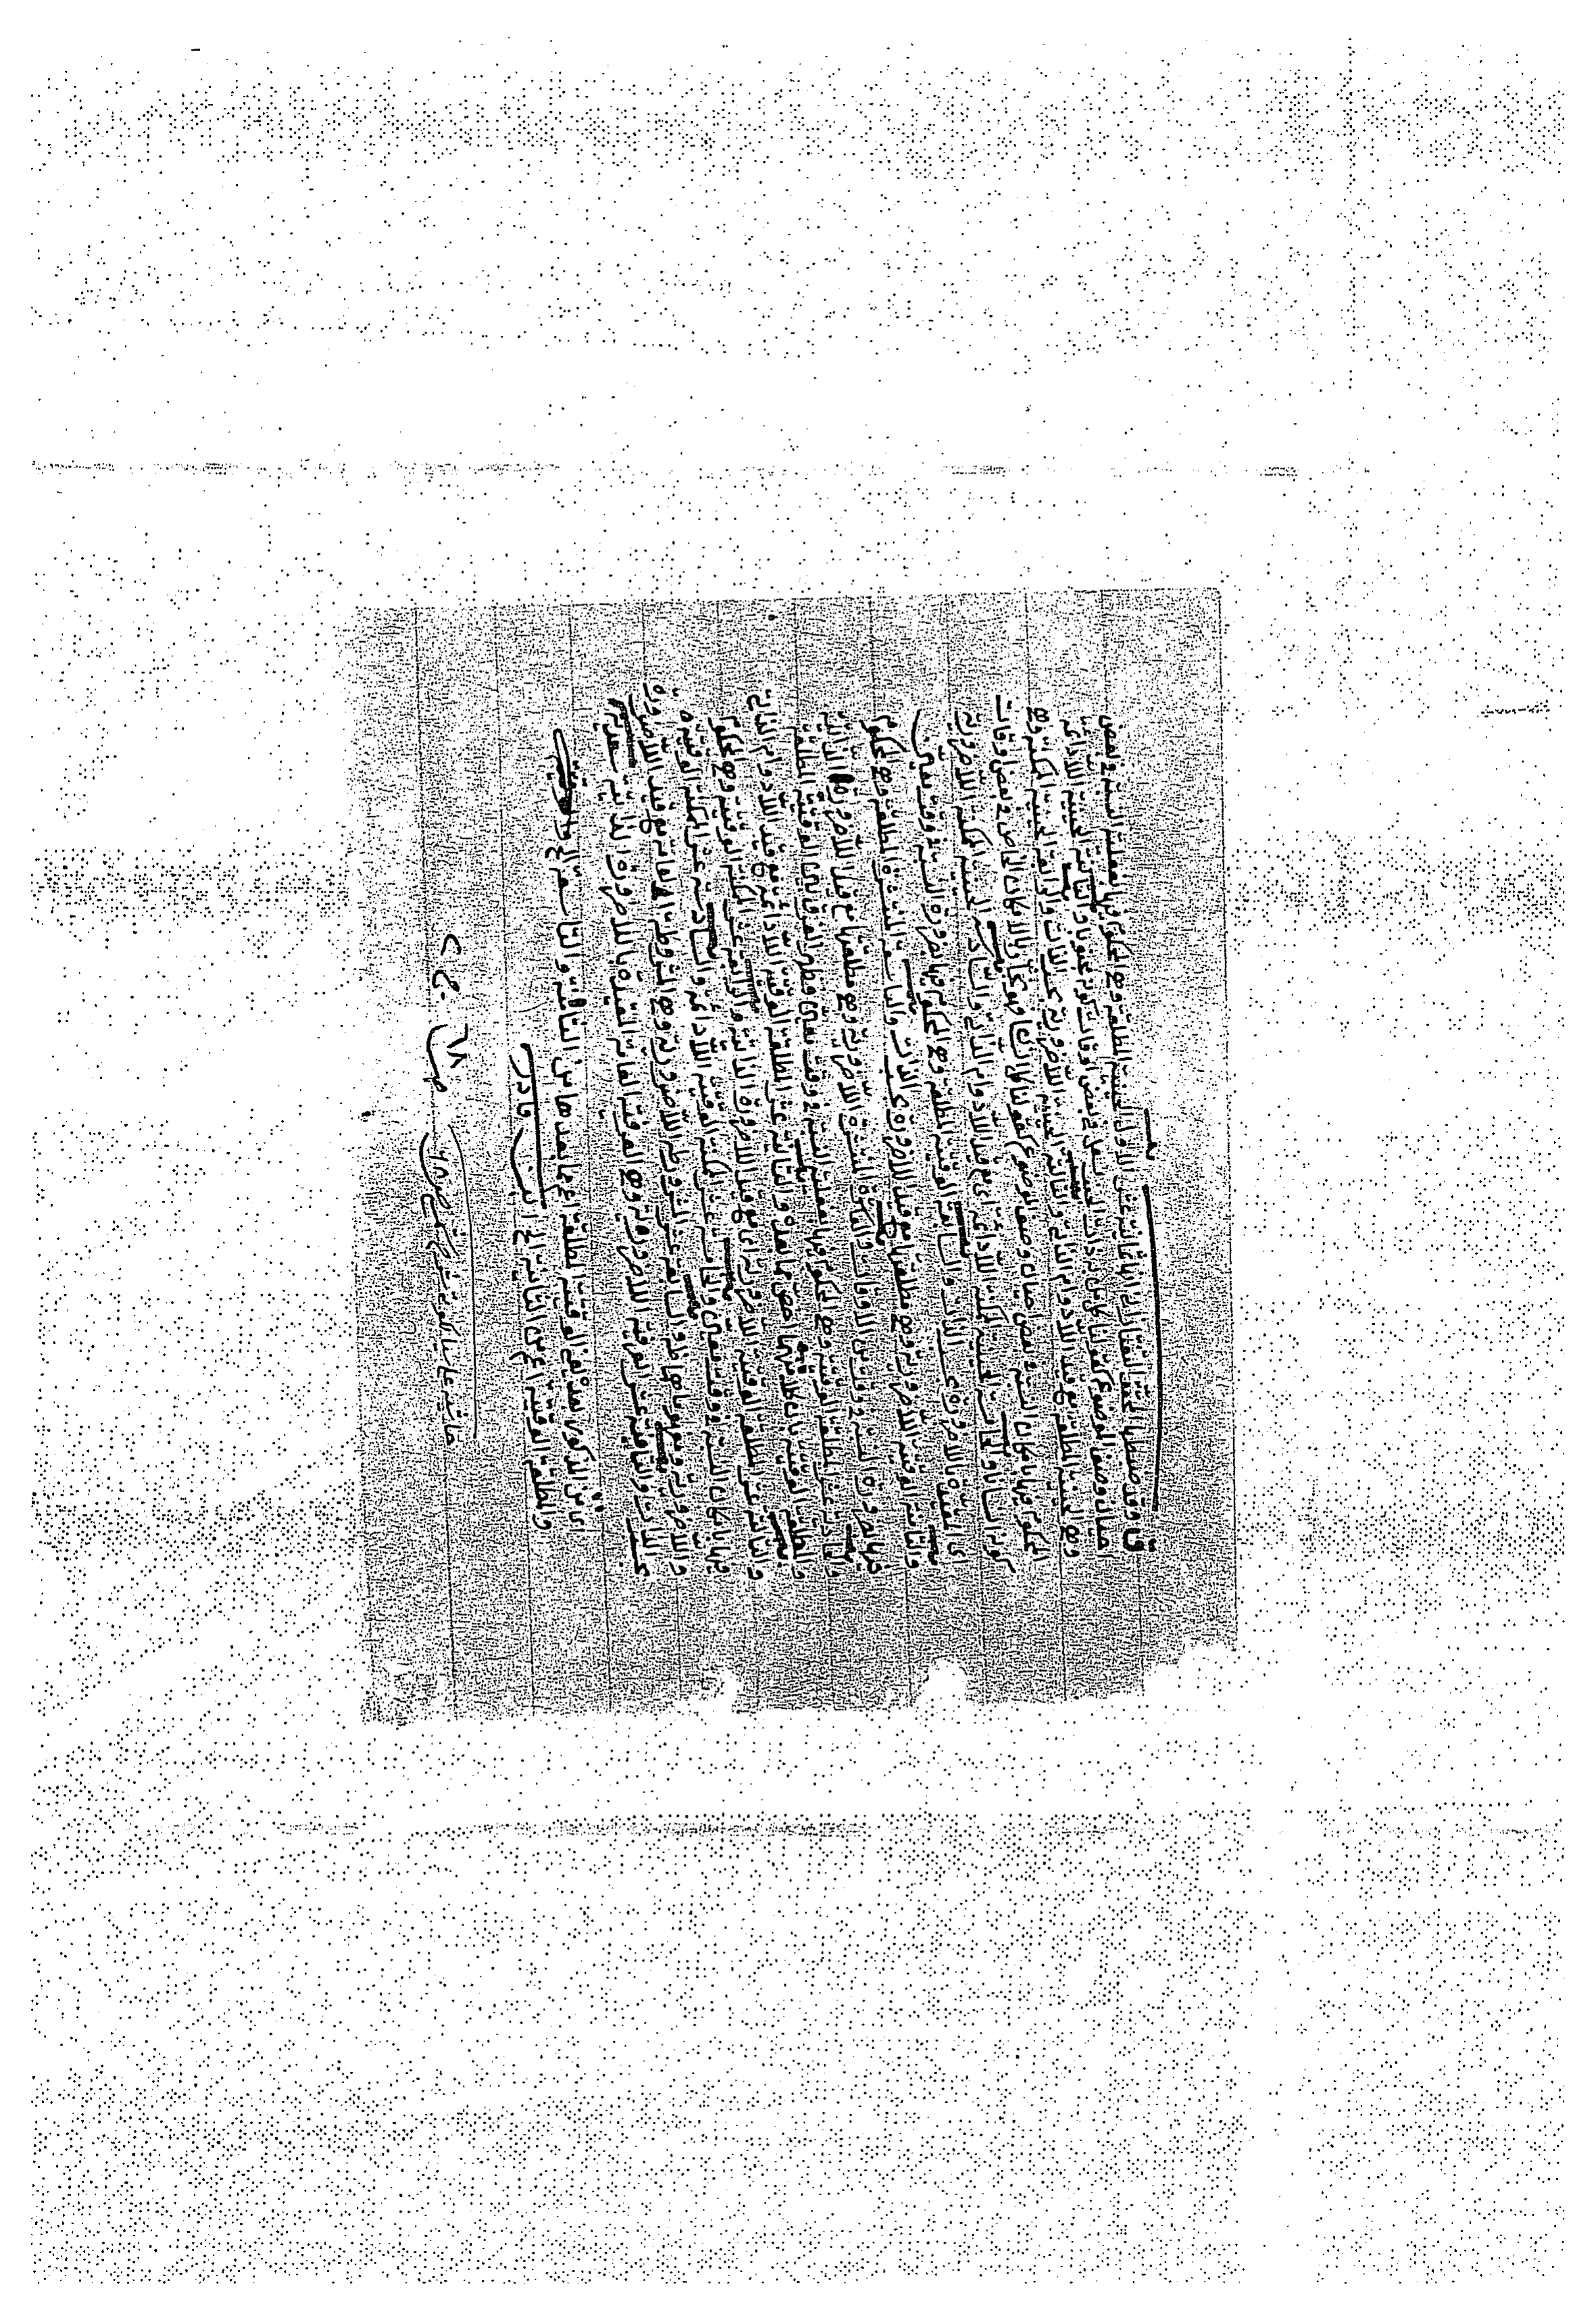 قال وقد ضبطها المحقق التفتازاني انها ثمانية عشر الاولى الحينية المطلقة وهي المحكوم فيها بفعلية النسبة في بعض
احيان وصف الموضوع كقولنا كل من به ذات الجنب يسعل في بعض اوقات كونه مجنوبا والثانية الحينية اللادائمة
وهي الحينية المطلقة مع قيد اللادوام الذاتي والثالثة الحينية اللاضرورية بحسب الذات والرابعة الحينية الممكنة وهي
المحكوم فيها بامكان النسبة في بعض احيان وصف الموضوع كقولنا كل انسان فهو كاتب بالامكان الخاص في بعض اوقات
كونه انسانا والخامسة الحينية الممكنة اللادائمة اي مع قيد اللادوام الذاتي والسادسة الحينية الممكنة اللاضرورية
اي المقيدة باللاضرورة بحسب الذات والسابعة الوقتية المطلقة وهي المحكوم فيها بضرورة النسبة في وقت معين
والثامنة الوقتية اللاضرورية وهي مطلقتها مع قيد اللاضرورة بحسب الذات والتاسعة المنتشرة المطلقة وهي المحكوم
فيها بضرورة النسبة في وقت من الاوقات والعاشرة المنتشرة اللاضرورية وهي مطلقتها مع قيد اللاضرورة الذاتية
والحادية عشر المطلقة الوقتية وهي المحكوم فيها بفعلية النسبة في وقت معين فظهر الفرق بين الوقتية المطلقة
والمطلقة الوقتية بان كلا منهما اخص مما بعده والثانية عشر المطلقة الوقتية اللادائمة مع قيد اللادوام الذاتي
والثالثة عشر المطلقة الوقتية اللاضرورية اي مع قيد اللاضرورة الذاتية والرابعة عشر الممكنة الوقتية وهي المحكوم
فيها بامكان النسبة في وقت معين والخامسة عشر الممكنة الوقتية اللادائمة والسادسة عشر الممكنة الوقتية
اللاضرورية ومفهومهما ظاهر والسابعة عشر المشروطة اللاضرورية وهي المشروطة العامة مع قيد اللاضرورة
والثامنة عشر العرفية اللاضرورية وهي العرفية العامة المقيدة باللاضرورة الذاتية
المذكور الوقتية المطلقة اعم مما بعدها من الثامنة والتاسعة
والمطلقة الوقتية اعم من الثانية عشر
حاشية على